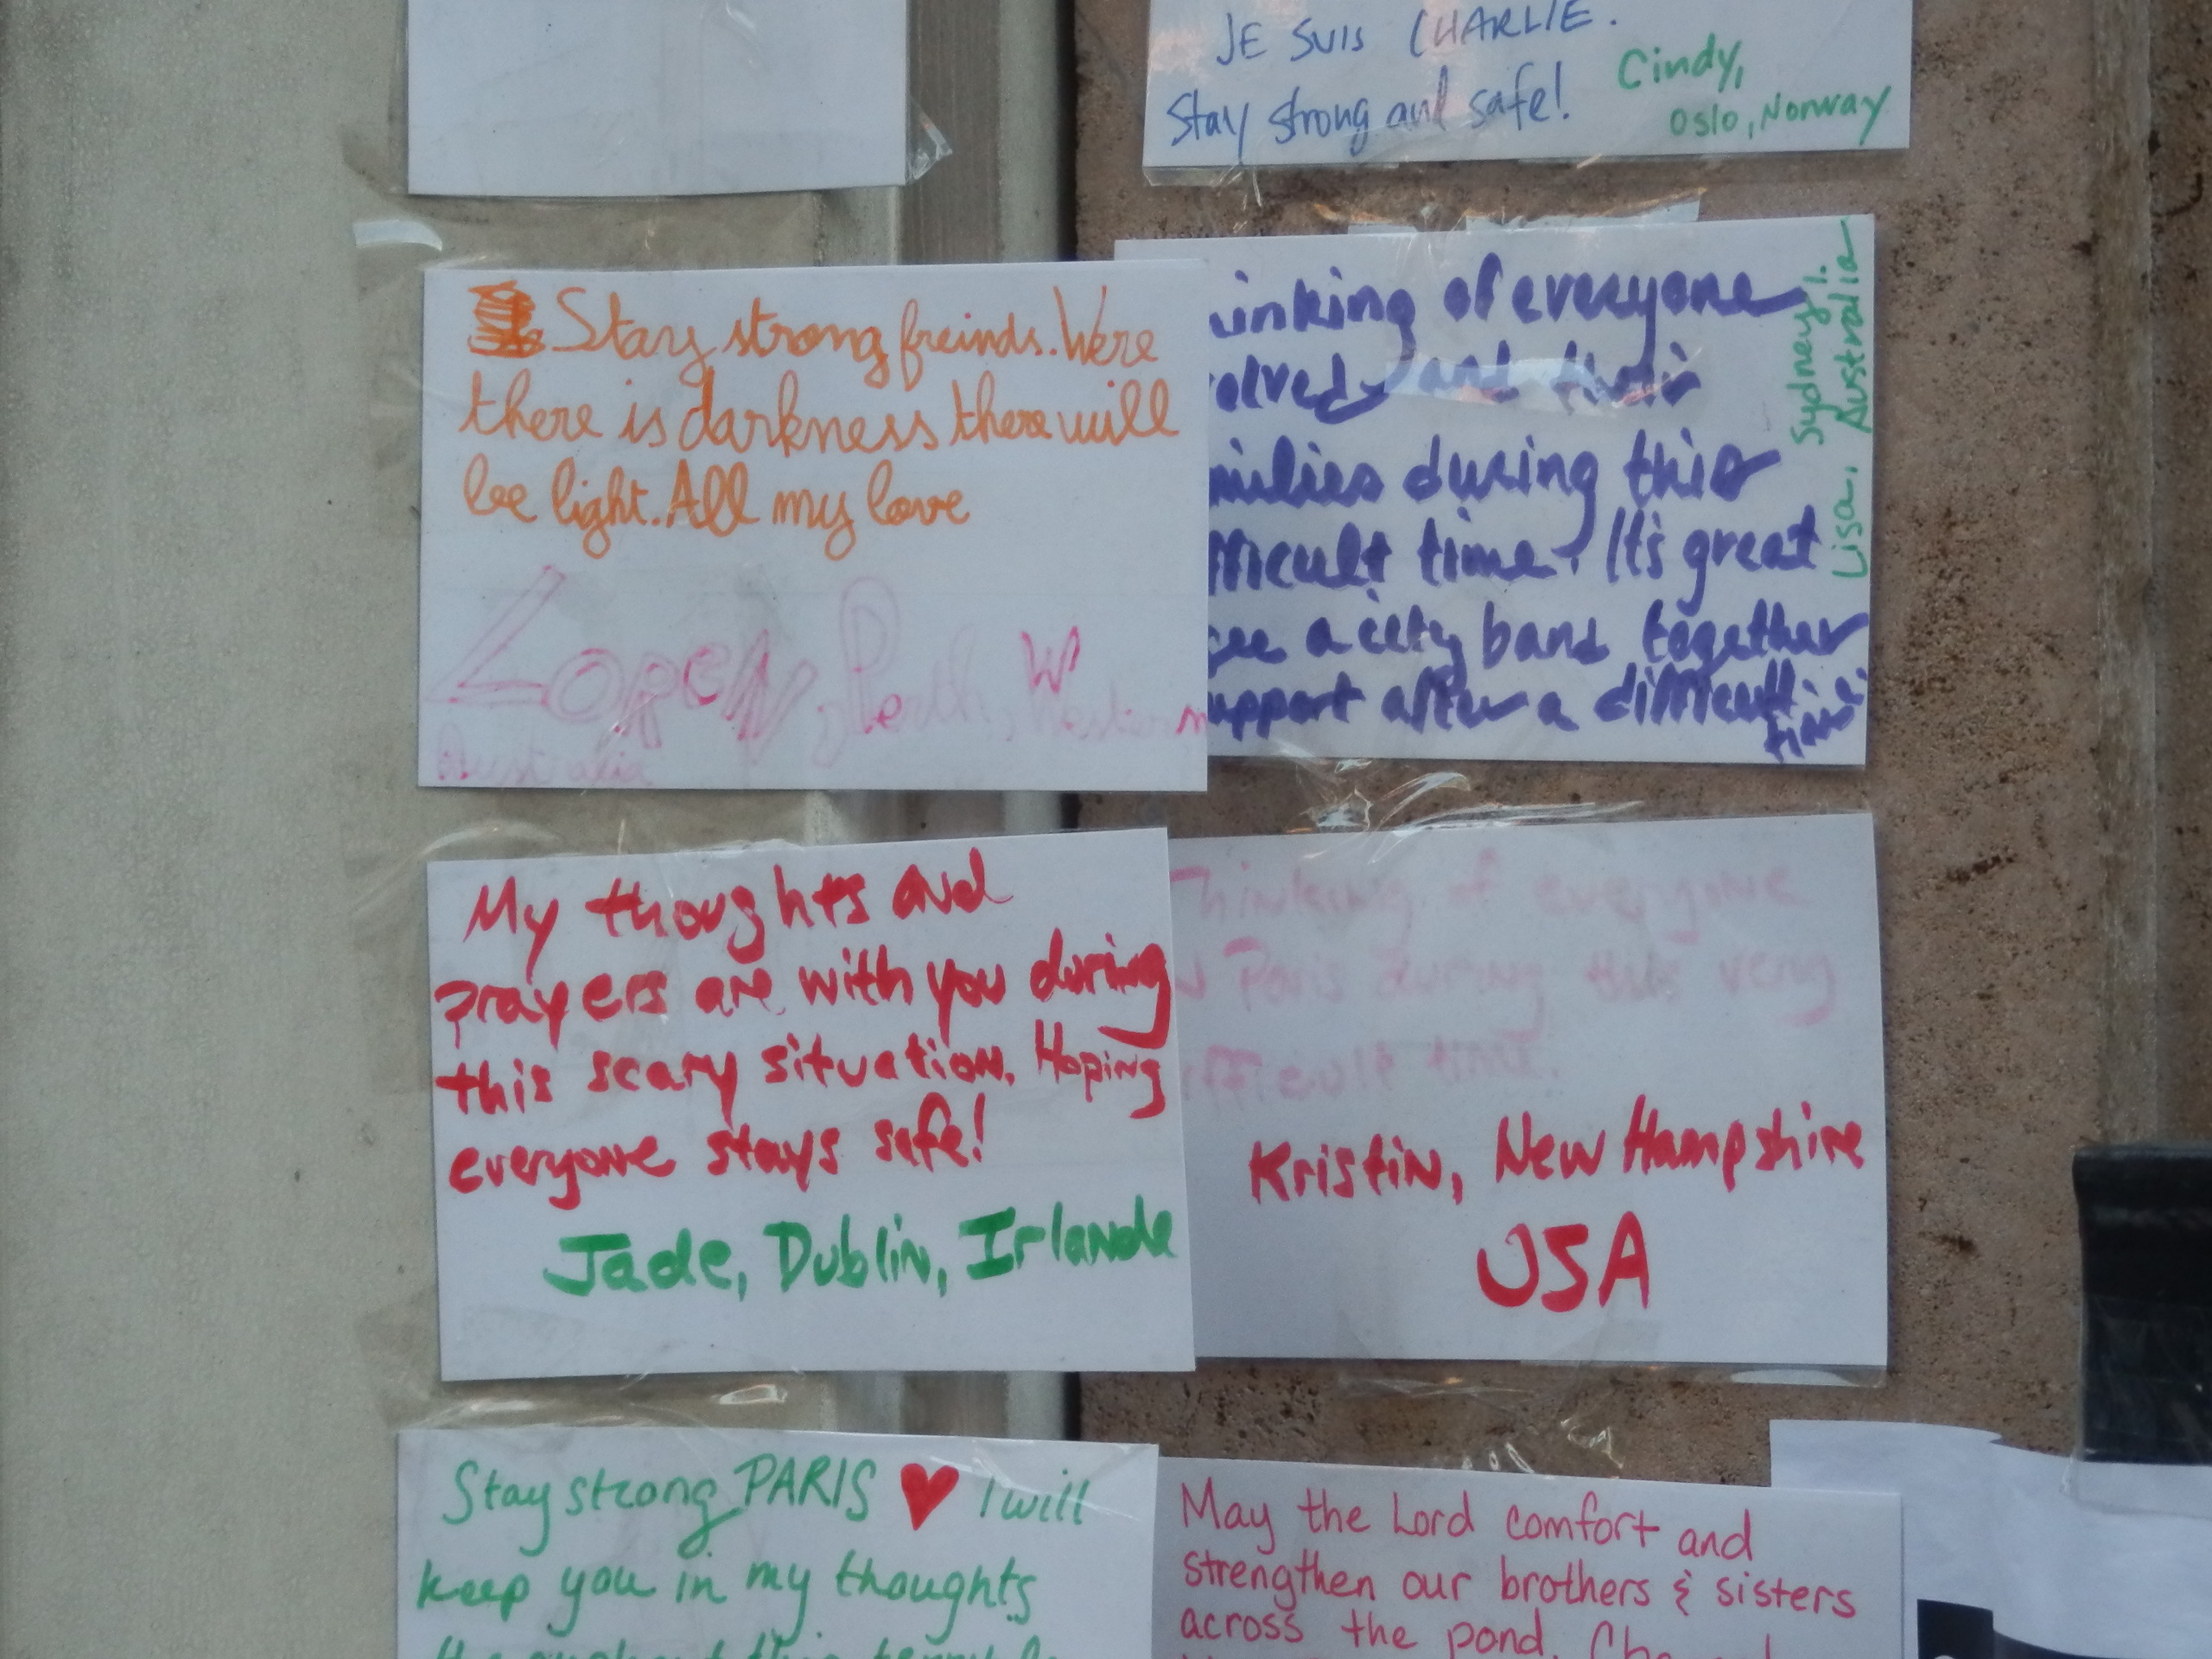 JE SUIS CHARLIE.
Stay strong and safe!
Cindy,
Oslo, Norway
Stay strong freinds. Were
there is darkness there will
be light. All my love
Loren, Perth, W Western
Australia
inking of everyone
olved and their
milies during this
fficult time. It's great
see a city band together
upport after a difficult
time.
Lisa. Sydney!
Australia
My thoughts and
prayers are with you during
this scary situation. Hoping
everyone stays safe!
Jade, Dublin, Irlande
Thinking of everyone
Paris during this very
fficult time.
Kristin, New Hampshire
USA
Stay strong PARIS ♥ I will
keep you in my thoughts
May the Lord comfort and
strengthen our brothers & sisters
across the pond.